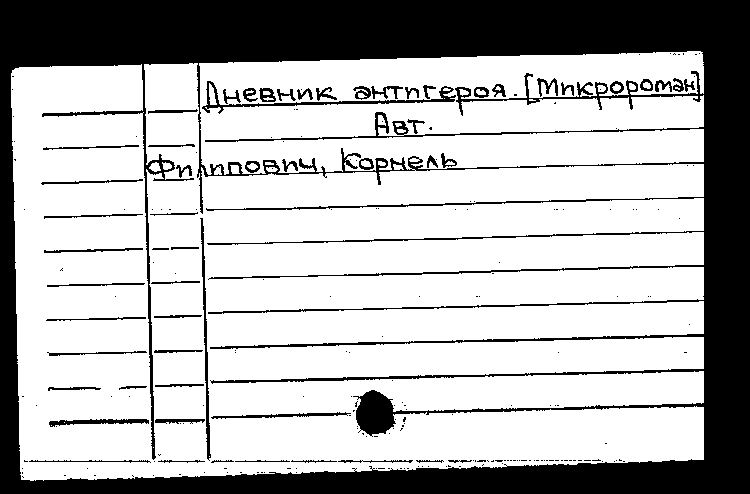 Дневник антигероя. [Микророман]
Авт.
Филипович, Корнель